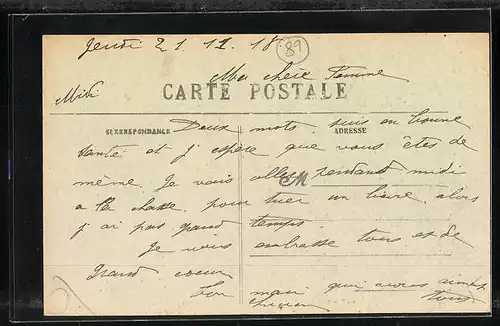 Jeudi 21 11 18
89
Ma chère femme
Midi
CARTE POSTALE
CORRESPONDANCE
ADRESSE
Deux mots. suis en bonne
santé et j'espère que vous êtes de
même. Je vais aller pendant midi
a la chasse pour tuer un lievre, alors
j'ai pas grand temps.
Je vous embrasse tous et de
grand coeur
ton mari qui vous aime
tous